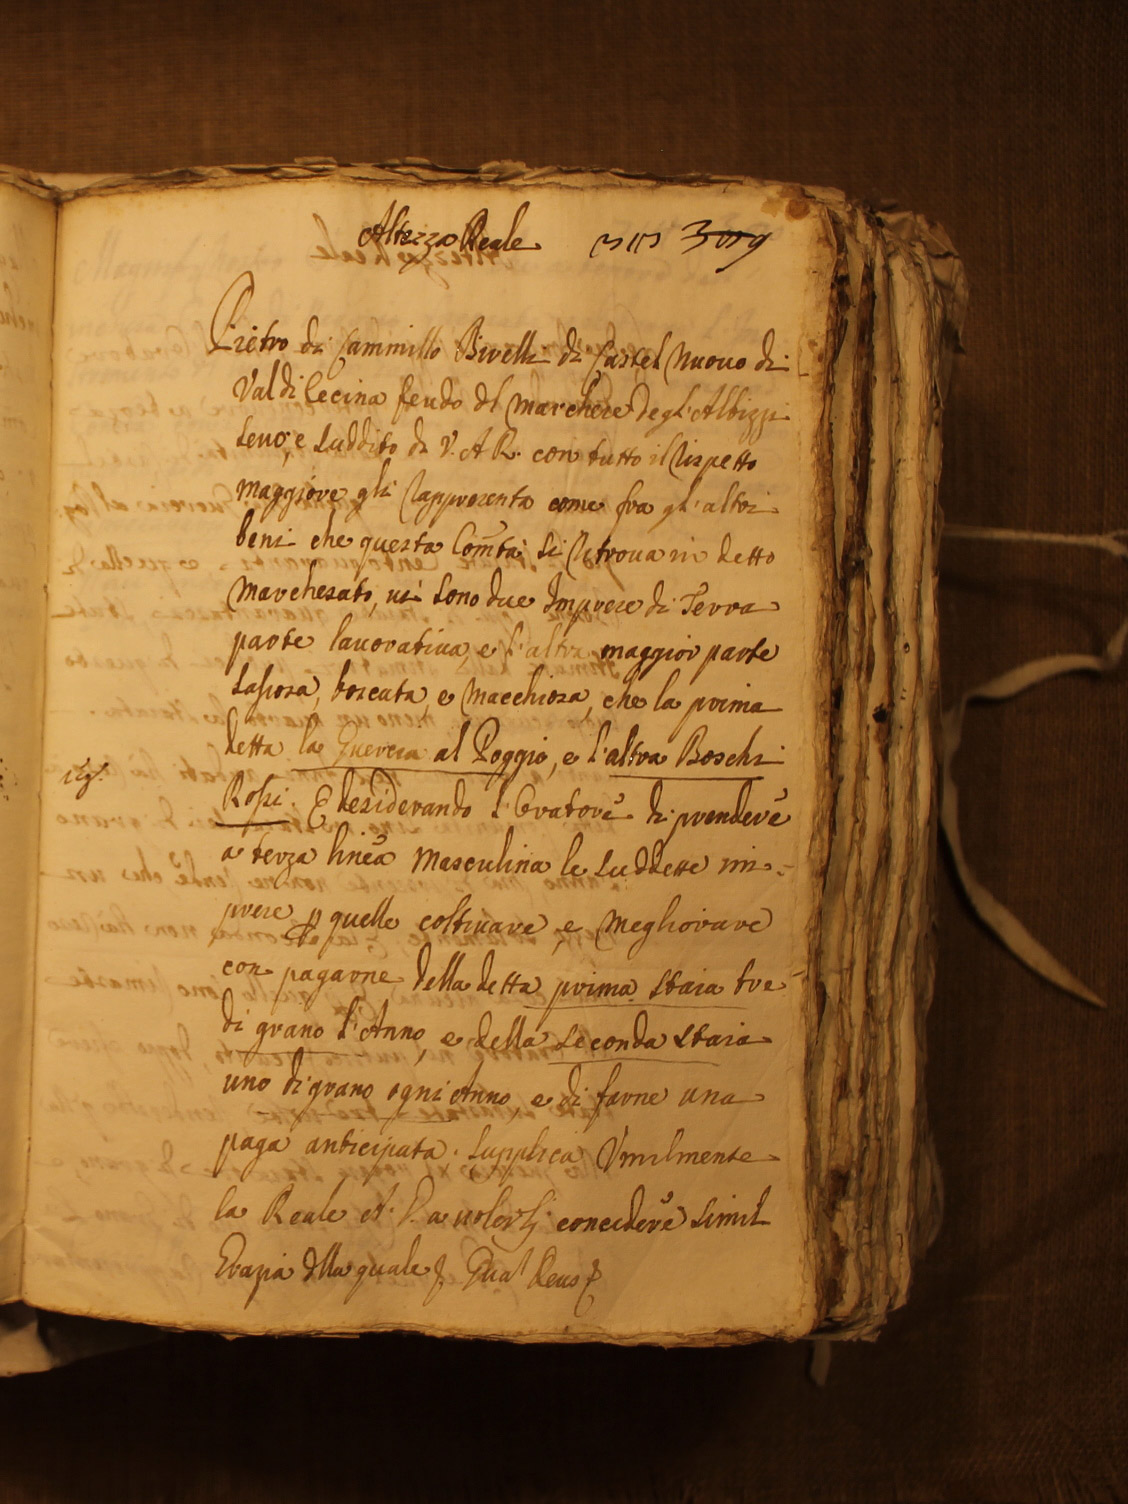 Altezza Reale 309
Pietro di Cammillo Birelli di Castel Nuovo di
Val di Cecina feudo dl Marchese degl'Albizzi
Servo, e Suddito di V. A R. con tutto il Rispetto
maggiore gli Rappresenta come fra gl'altri
beni che questa Com̃tà si Ritrova in detto
Marchesato, vi sono due Imprese di Terra
parte lavorativa, e l'altra maggior parte
sassosa, boscata, e Macchiosa, che la prima
detta la Querca al Poggio, e l'altra Boschi
Rossi. E desiderando l'Oratore di prendere
a terza linea Masculina le suddette im=
prese p quelle coltivare, e Megliorare
con pagarne della detta prima staia tre
di grano l'Anno, e della seconda staia
uno di grano ogni Anno, e di farne una
paga anticipata. Supplica Umilmente
la Reale A. V. a volerli concedere simil
Grazia dlla quale Qual Deus